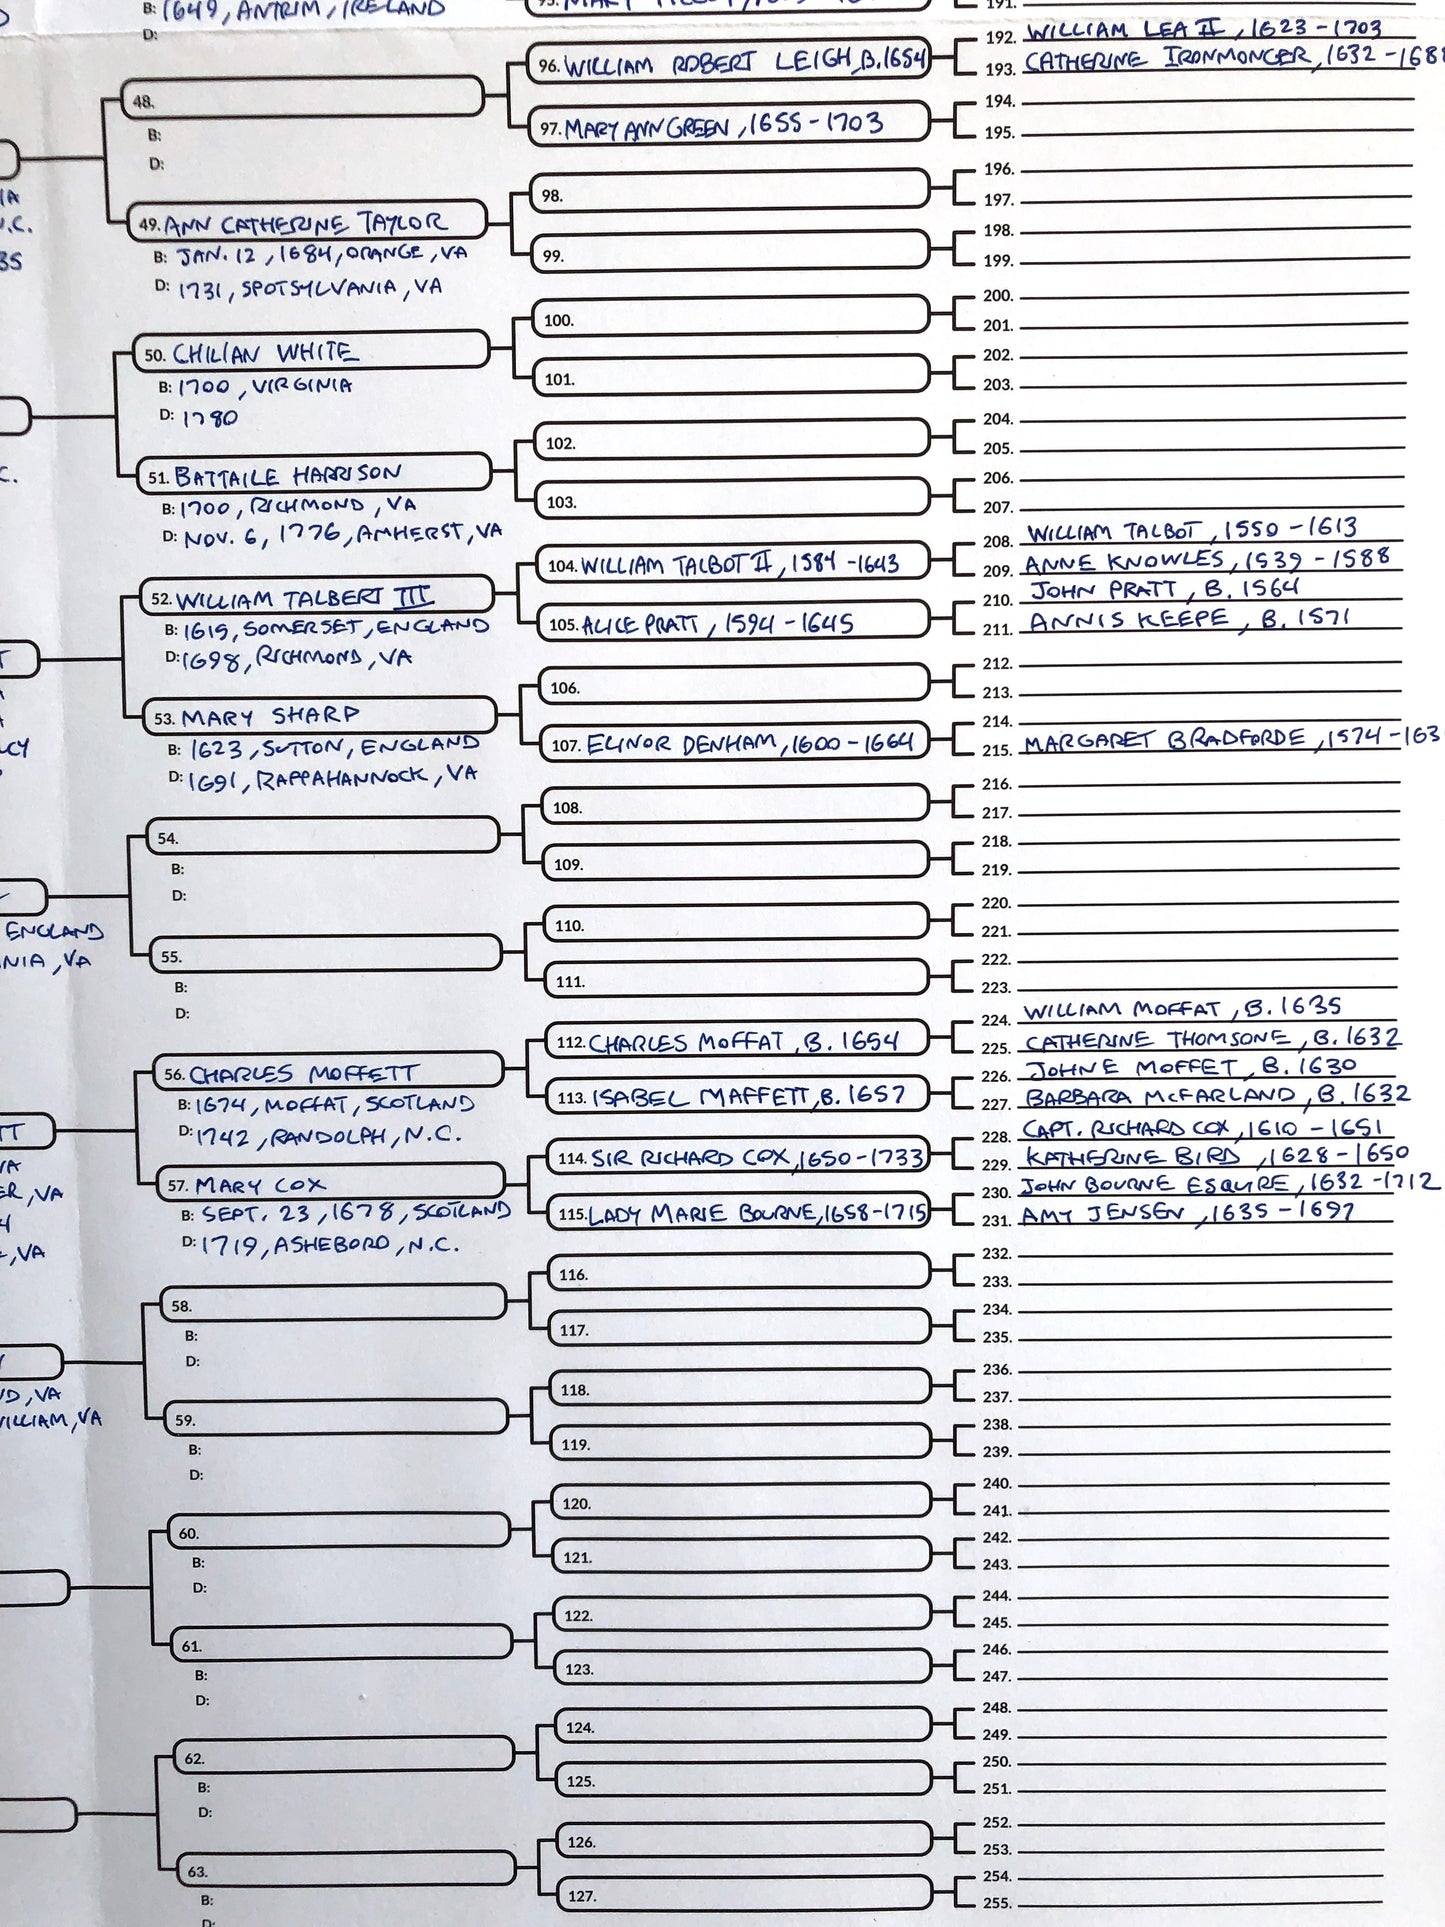 B: 1649, ANTRIM, IRELAND
D:
48.
B:
D:
IA
N.C.
35
49. ANN CATHERINE TAYLOR
B: JAN. 12, 1684, ORANGE, VA
D: 1731, SPOTSYLVANIA, VA
50. CHILIAN WHITE
B: 1700, VIRGINIA
D: 1780
C.
51. BATTAILE HARRISON
B: 1700, RICHMOND, VA
D: NOV. 6, 1776, AMHERST, VA
52. WILLIAM TALBERT III
B: 1615, SOMERSET, ENGLAND
D: 1698, RICHMOND, VA
T
A
A
LCY
53. MARY SHARP
B: 1623, SUTTON, ENGLAND
D: 1691, RAPPAHANNOCK, VA
54.
B:
D:
ENGLAND
NIA, VA
55.
B:
D:
56. CHARLES MOFFETT
B: 1674, MOFFAT, SCOTLAND
D: 1742, RANDOLPH, N.C.
TT
VA
ER, VA
4
, VA
57. MARY COX
B: SEPT. 23, 1678, SCOTLAND
D: 1719, ASHEBORO, N.C.
58.
B:
D:
Y
ND, VA
WILLIAM, VA
59.
B:
D:
60.
B:
D:
61.
B:
D:
62.
B:
D:
63.
B:
D:
96. WILLIAM ROBERT LEIGH, B. 1654
97. MARY ANN GREEN, 1655-1703
98.
99.
100.
101.
102.
103.
104. WILLIAM TALBOT II, 1584-1643
105. ALICE PRATT, 1594-1645
106.
107. ELINOR DENHAM, 1600-1664
108.
109.
110.
111.
112. CHARLES MOFFAT, B. 1654
113. ISABEL MAFFETT, B. 1657
114. SIR RICHARD COX, 1650-1733
115. LADY MARIE BOURNE, 1658-1715
116.
117.
118.
119.
120.
121.
122.
123.
124.
125.
126.
127.
191.
192. WILLIAM LEA II, 1623-1703
193. CATHERINE IRONMONGER, 1632-168
194.
195.
196.
197.
198.
199.
200.
201.
202.
203.
204.
205.
206.
207.
208. WILLIAM TALBOT, 1550-1613
209. ANNE KNOWLES, 1539-1588
210. JOHN PRATT, B. 1564
211. ANNIS KEEPE, B. 1571
212.
213.
214.
215. MARGARET BRADFORDE, 1574-163
216.
217.
218.
219.
220.
221.
222.
223.
224. WILLIAM MOFFAT, B. 1635
225. CATHERINE THOMSONE, B. 1632
226. JOHNE MOFFET, B. 1630
227. BARBARA MCFARLAND, B. 1632
228. CAPT. RICHARD COX, 1610-1651
229. KATHERINE BIRD, 1628-1650
230. JOHN BOURNE ESQUIRE, 1632-1712
231. AMY JENSEN, 1635-1697
232.
233.
234.
235.
236.
237.
238.
239.
240.
241.
242.
243.
244.
245.
246.
247.
248.
249.
250.
251.
252.
253.
254.
255.